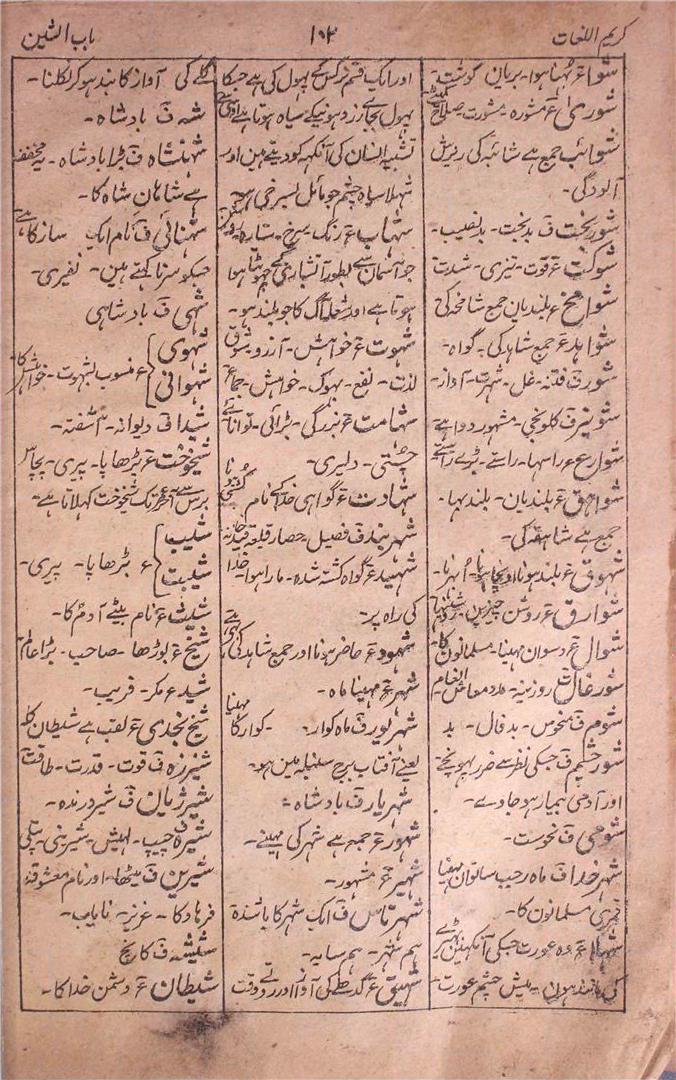 کریم اللغات
۱۰۳
باب الشین
شواء ع بُھنا ہوا۔ بریان گوشت۔
شوریٰ ع مشورہ۔ مشورت۔ صلاح
شوائب جمع ہے شائبہ کی
آلودگی۔
شوربخت ف بدبخت۔ بدنصیب۔
شوکت ع قوت۔ تیزی۔ شدت
شوامخ ع بلندیان جمع شامخہ کی
شواہد ع جمع شاہد کی۔ گواہ۔
شور ف فتنہ۔ غل۔ شہرت۔ آواز۔
شونیز ف کلونجی۔ مشہور دوا ہے
شوارع ع راہہا۔ راستے۔ بڑے راستے
شواہق ع بلندیان۔ بلندیہا۔
جمع ہے شاہقہ کی۔
شہوق ع بلند ہونا
شوارق ع روشن چیزین
شوال ع دسوان مہینا۔ مسلمانون کا۔
شورغال ت روزینہ۔ مدد معاش انعام
شوم ف منحوس۔ بدفال۔ بد
شور چشم ف جسکی نظر سے ضرر پہونچے
اور آدمی بیمار ہو جاوے۔
شومی ف نحوست۔
شہر خدا ف ماہ رجب ساتوان مہینا
قمری مسلمانون کا۔
شہلا ع وہ عورت جسکی آنکھین بھیڑ
کی مانند ہون۔ میش چشم عورت۔
اور ایک قسم نرگس کے پھول کی ہے جسکا
پھول بجائے زرد ہونیکے سیاہ ہوتا ہے
تشبیہ انسان کی آنکھہ کو دیتے ہین اور
شہلا سیاہ چشم جو مائل بسرخی ہو۔
شہاب ع رنگ سرخ۔ ستارہ
جو آسمان سے بطور آتشبازی کے چھوٹتا ہوا
ہوتا ہے اور شعلہ آگ کا جو بلند ہو۔
شہوت ع خواہش۔ آرزو۔ شوق
لذت۔ نفع۔ بھوک۔ خواہش۔ جماع
شہامت ع بزرگی۔ بڑائی۔ توانائی
چستی۔ دلیری۔
شہادت ع گواہی خدا کے نام
شہربند ف فصیل۔ حصار قلعہ قیدخانہ
شہید ع گواہ کشتہ شدہ۔ مارا ہوا۔ خدا
کی راہ پر۔
شہود ع حاضر ہونا اور جمع شاہد کی
شہر ع مہینا ماہ۔
شہریور ف ماہ کوار۔ کوار کا مہینا
یعنے آفتاب برج سنبلہ مین ہو۔
شہریار ف بادشاہ۔
شہور ع جمع ہے شہر کی مہینے۔
شہیر ع مشہور۔
شہرتاش ف ایک شہر کا باشندہ
ہم شہر۔ ہم سایہ۔
شہیق ع گدھے کی آواز اور روتے وقت
گلے کی آواز کا بند ہو کر نکلنا۔
شہ ف بادشاہ۔
شہنشاہ ف بڑا بادشاہ۔ یہ مخفف
ہے شاہانِ شاہ کا۔
شہنائی ف نام ایک ساز کا ہے
جسکو سرنا کہتے ہین۔ نفیری۔
شہی ف بادشاہی
شہوی
شہوانی
ع منسوب بشہوت۔ خواہش کا
شیدا ف دیوانہ۔ آشفتہ۔
شیخوخت ع بڑھاپا۔ پیری۔ پچاس
برس سے آخر عمر تک شیخوخت کہلاتا ہے۔
شیب
شیبت
ع بڑھاپا۔ پیری۔
شیث ع نام بیٹے آدم کا۔
شیخ ع بوڑھا۔ صاحب۔ بڑا عالم
شید ع مکر۔ فریب۔
شیخ نجدی ع لقب ہے شیطان کا
شیرزہ ف قوت۔ قدرت۔ طاقت
شیر ژیان ف شیر درندہ۔
شیرہ ف چیپ۔ لہیش۔ شیرینی۔
شیرین ف میٹھا۔ اور نام معشوقہ
فرہاد کا۔ عزیز۔ نایاب۔
شیشہ ف کانچ
شیطان ع دشمن خدا کا۔